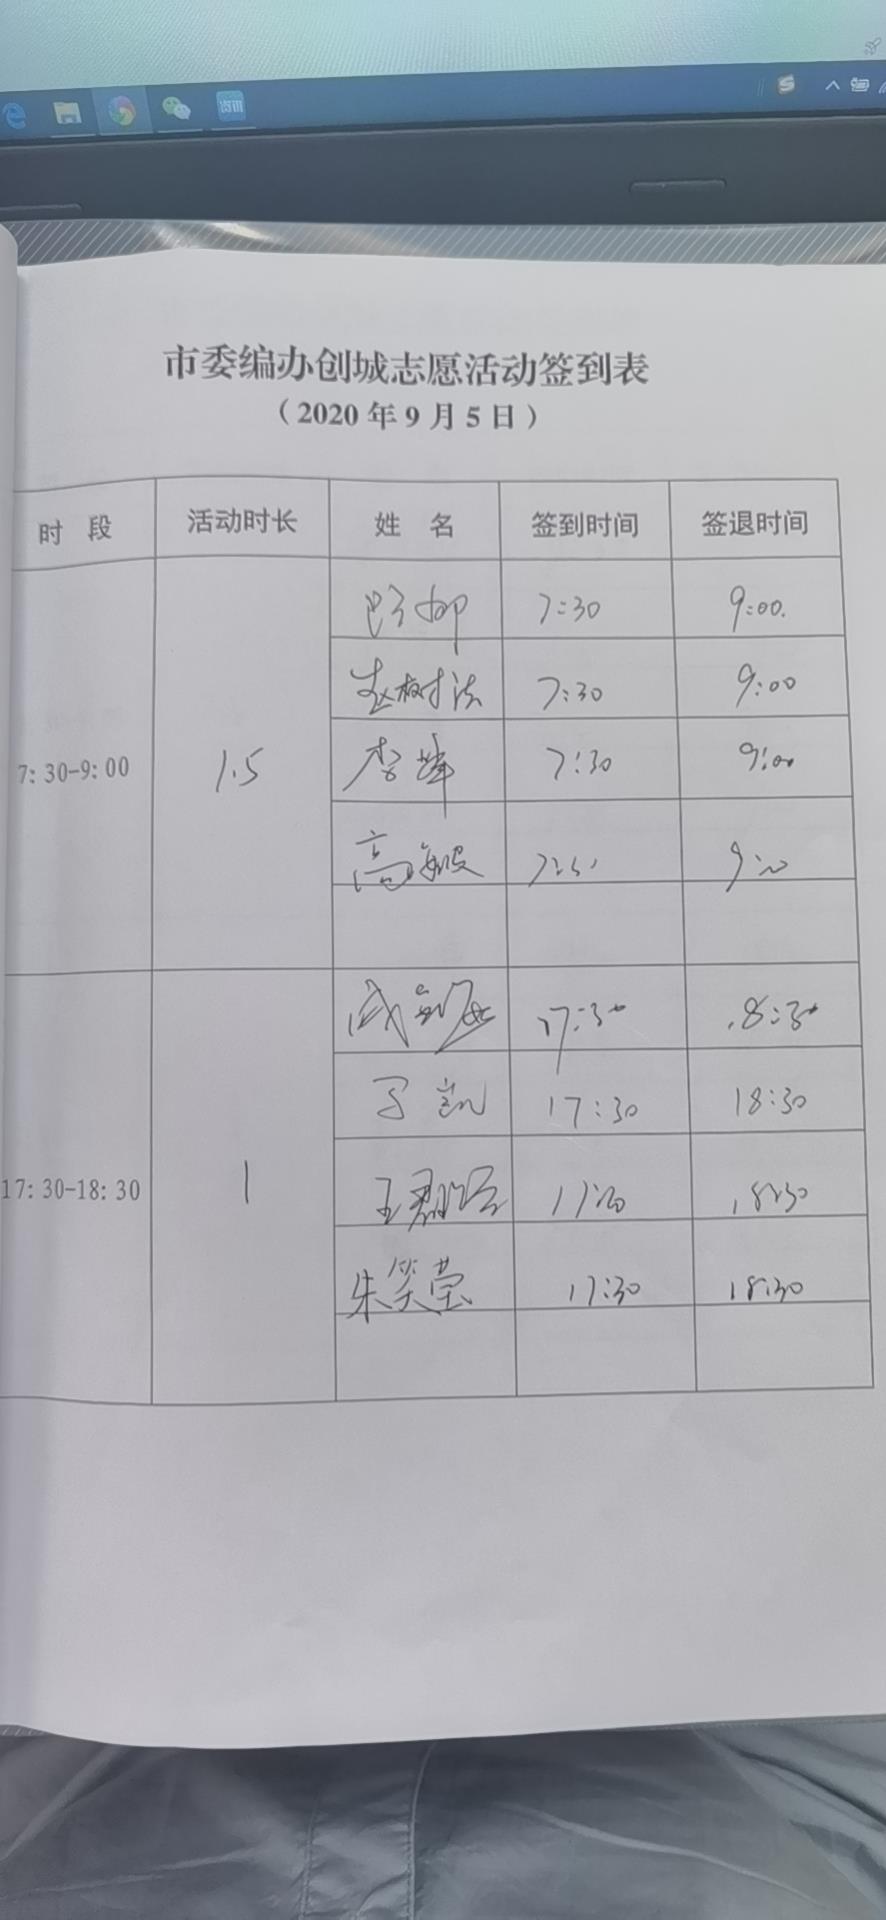 资讯
市委编办创城志愿活动签到表
（2020年9月5日）
时 段 活动时长 姓 名 签到时间 签退时间
7:30 9:00.
赵树法 7:30 9:00
7:30-9:00 1.5 李峰 7:30 9:00
高敏
17:30 18:30
17:30 18:30
17:30-18:30 1 王 18:30
朱笑莹 17:30 18:30